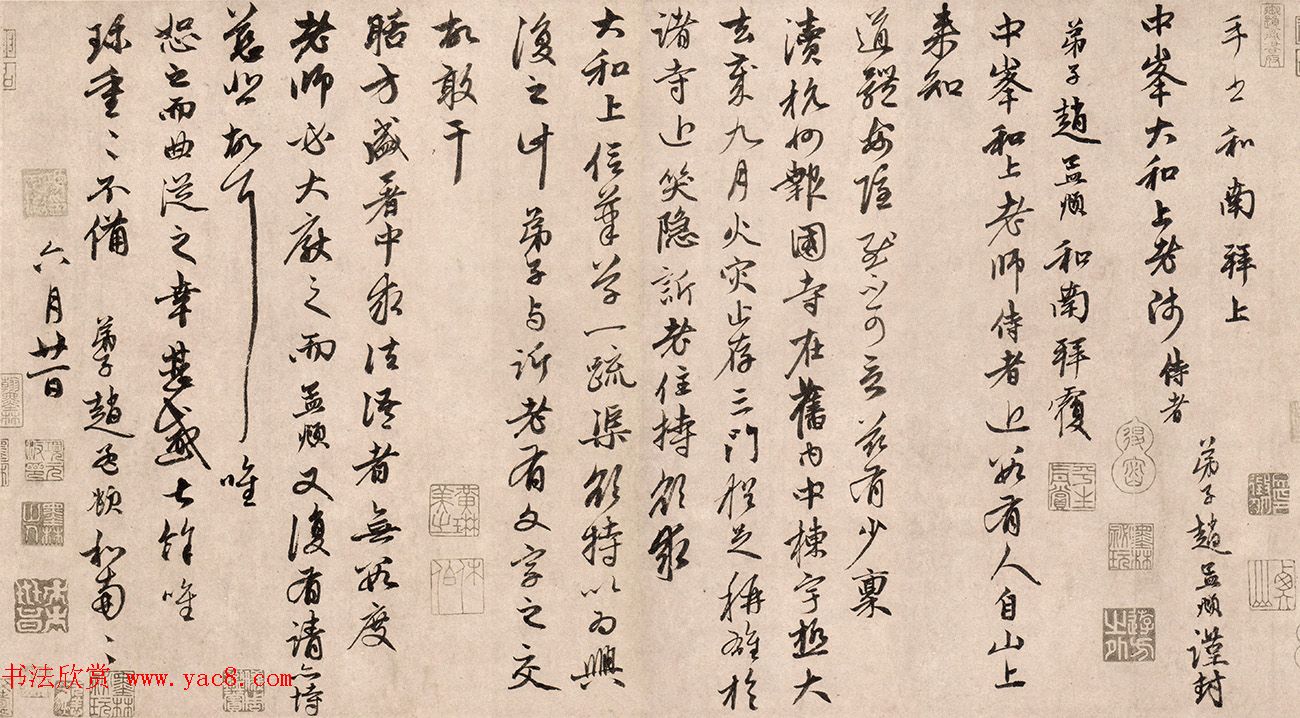 手書和南拜上
中峯大和上老師 侍者
弟子趙孟頫謹封
弟子趙孟頫和南拜覆
中峯和上老師侍者近數有人自山上
来知
道軆安隱慰不可言兹有少稟
瀆杭州報國寺在舊内中棟宇極大
去歲九月火灾止存三門猶足稱雄於
諸寺近笑隱訢老住持欲求
大和上信筆草一疏渠欲特以為興
復之計弟子与訢老有文字之交
故敢干
聒方盛暑中求法語者無數度
老師必大厭之而孟頫又復有請亦恃
慈悲故耳唯
恕之而曲從之幸甚感甚餘唯
珎重〻不備 弟子趙孟頫和南〻
六月廿一日
书法欣赏 www.yac8.com